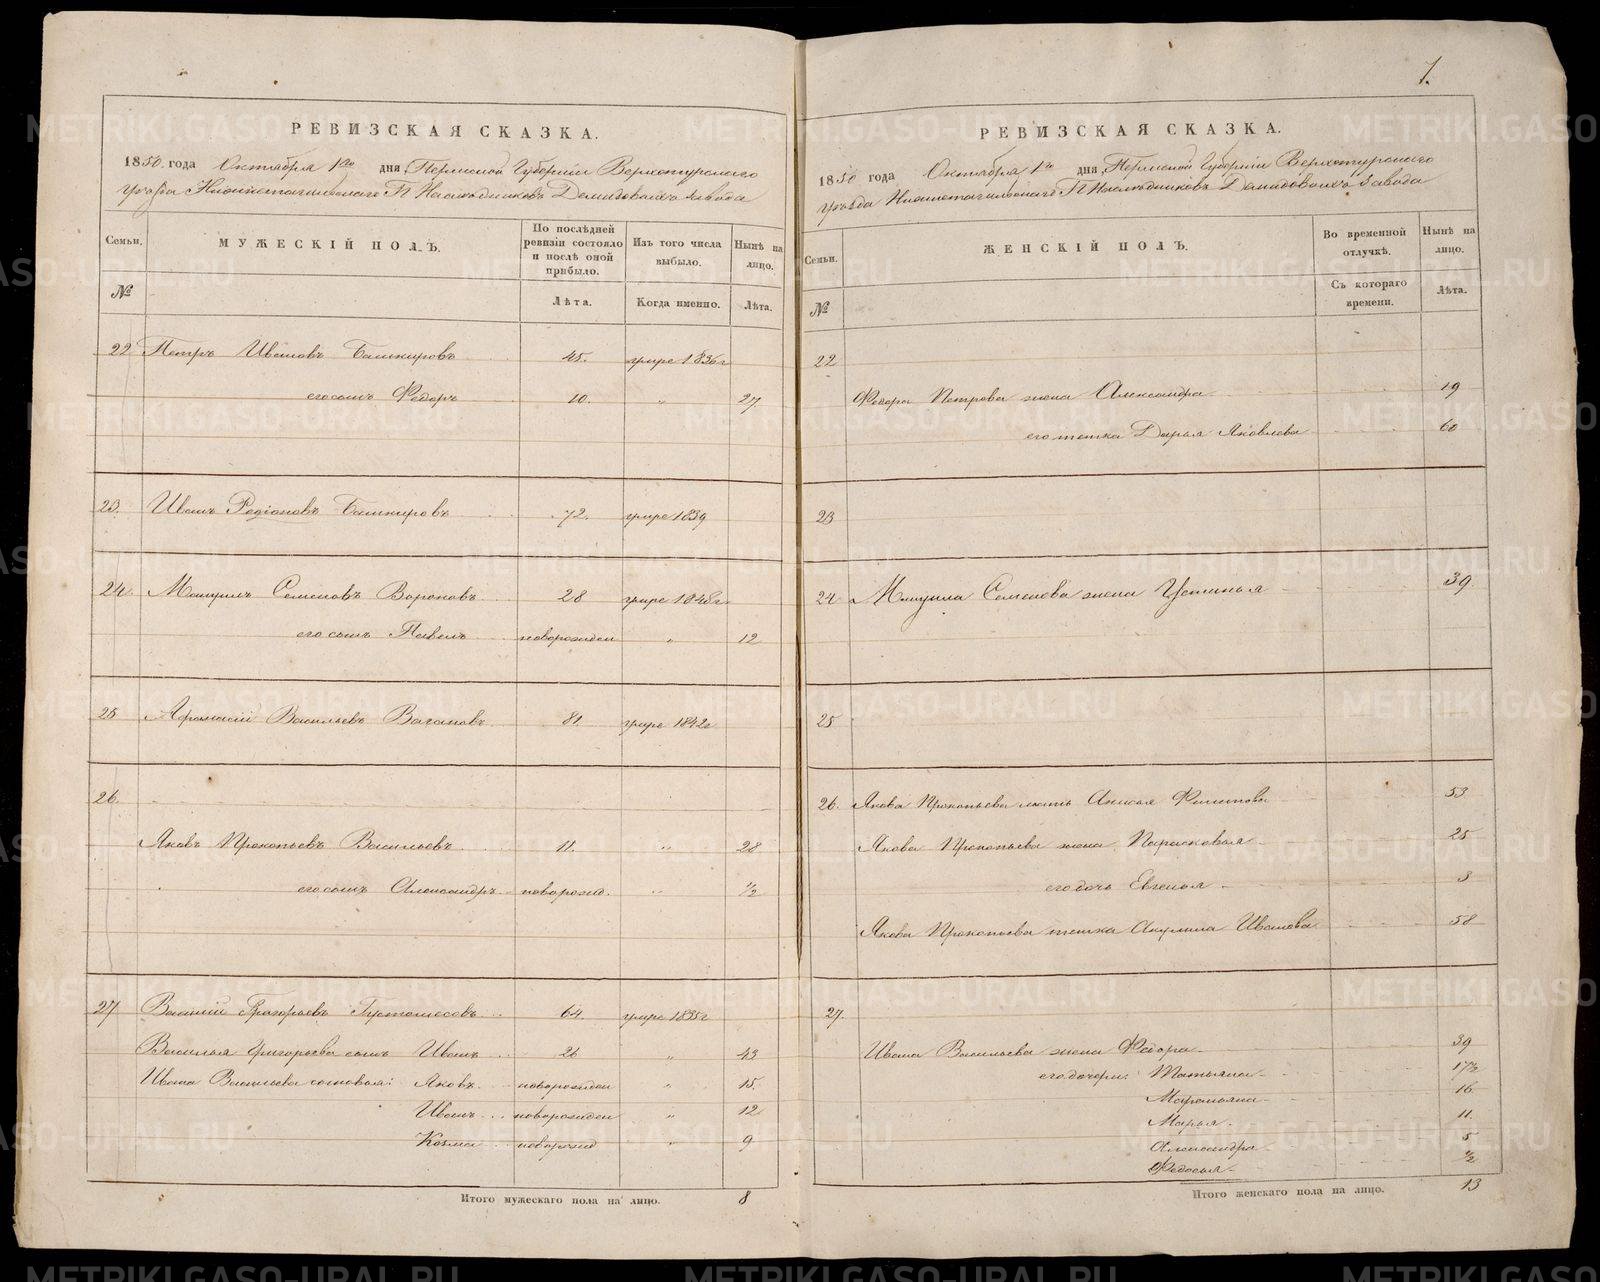 РЕВИЗСКАЯ СКАЗКА.
1850 года Октября 1го дня, Пермской Губернiи Верхотурскаго
уѣзда Нижнетагильскаго Г. Наслѣдниковъ Демидовыхъ завода
Семьи. МУЖЕСКIЙ ПОЛЪ. По послѣдней ревизiи состояло и послѣ оной прибыло. Изъ того числа выбыло. Нынѣ на лицо.
№ Лѣта. Когда именно. Лѣта.
22 Петръ Ивановъ Башкировъ 45. умре 1836г
его сынъ Федоръ 10. " 27
23. Иванъ Родiоновъ Башкировъ 72. умре 1839
24 Мануилъ Семеновъ Вороновъ 28 умре 1848г
его сынъ Павелъ новорожден " 12
25 Афонасiй Васильевъ Вагановъ 81. умре 1842г
26.
Яковъ Прокопьевъ Васильевъ 11. " 28
его сынъ Александръ новорожд. " ½
27 Василiй Григорьевъ 64. умре 1835г
Василья Григорьева сынъ Иванъ 26 " 43
Ивана Васильева сыновья: Яковъ новорожден " 15.
Иванъ новорожден " 12
Козма новорожд " 9
Итого мужескаго пола на лицо. 8
7.
РЕВИЗСКАЯ СКАЗКА.
1850 года Октября 1го дня, Пермской Губернiи Верхотурскаго
уѣзда Нижнетагильскаго Г. Наслѣдниковъ Демидовыхъ завода
Семьи. ЖЕНСКIЙ ПОЛЪ. Во временной отлучкѣ. Нынѣ на лицо.
№ Съ котораго времени. Лѣта.
22
Федора Петрова жена Александра 19
его тетка Дарья Яковлева 60
23
24 Мануила Семенова жена Устинья 39
25
26. Якова Прокопьева мать Анисья Филипова 53
Якова Прокопьева жена Парасковья 25
его дочь Евгенья 3
Якова Прокопьева тетка Акулина Иванова 58
27.
Ивана Васильева жена Федора 39
его дочери: Татьяна 17½
Маремьяна 16
Марья 11.
Александра 5
Федосья ½
Итого женскаго пола на лицо. 13
METRIKI.GASO-URAL.RU